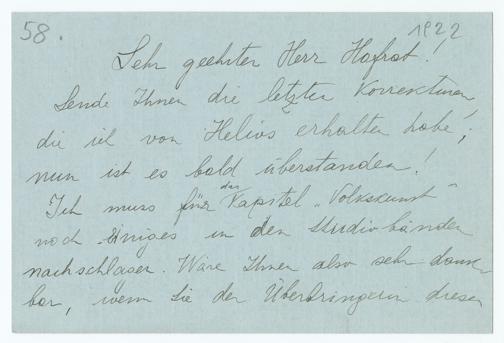 58.
1922
Sehr geehrter Herr Hofrat!
Sende Ihnen die letzten Korrekturen,
die ich von Helios erhalten habe;
nun ist es bald überstanden!
Ich muss für das Kapitel „Volkskunst"
noch einiges in den Studiobänden
nachschlagen. Wäre Ihnen also sehr dank-
bar, wenn Sie der Überbringerin dieser